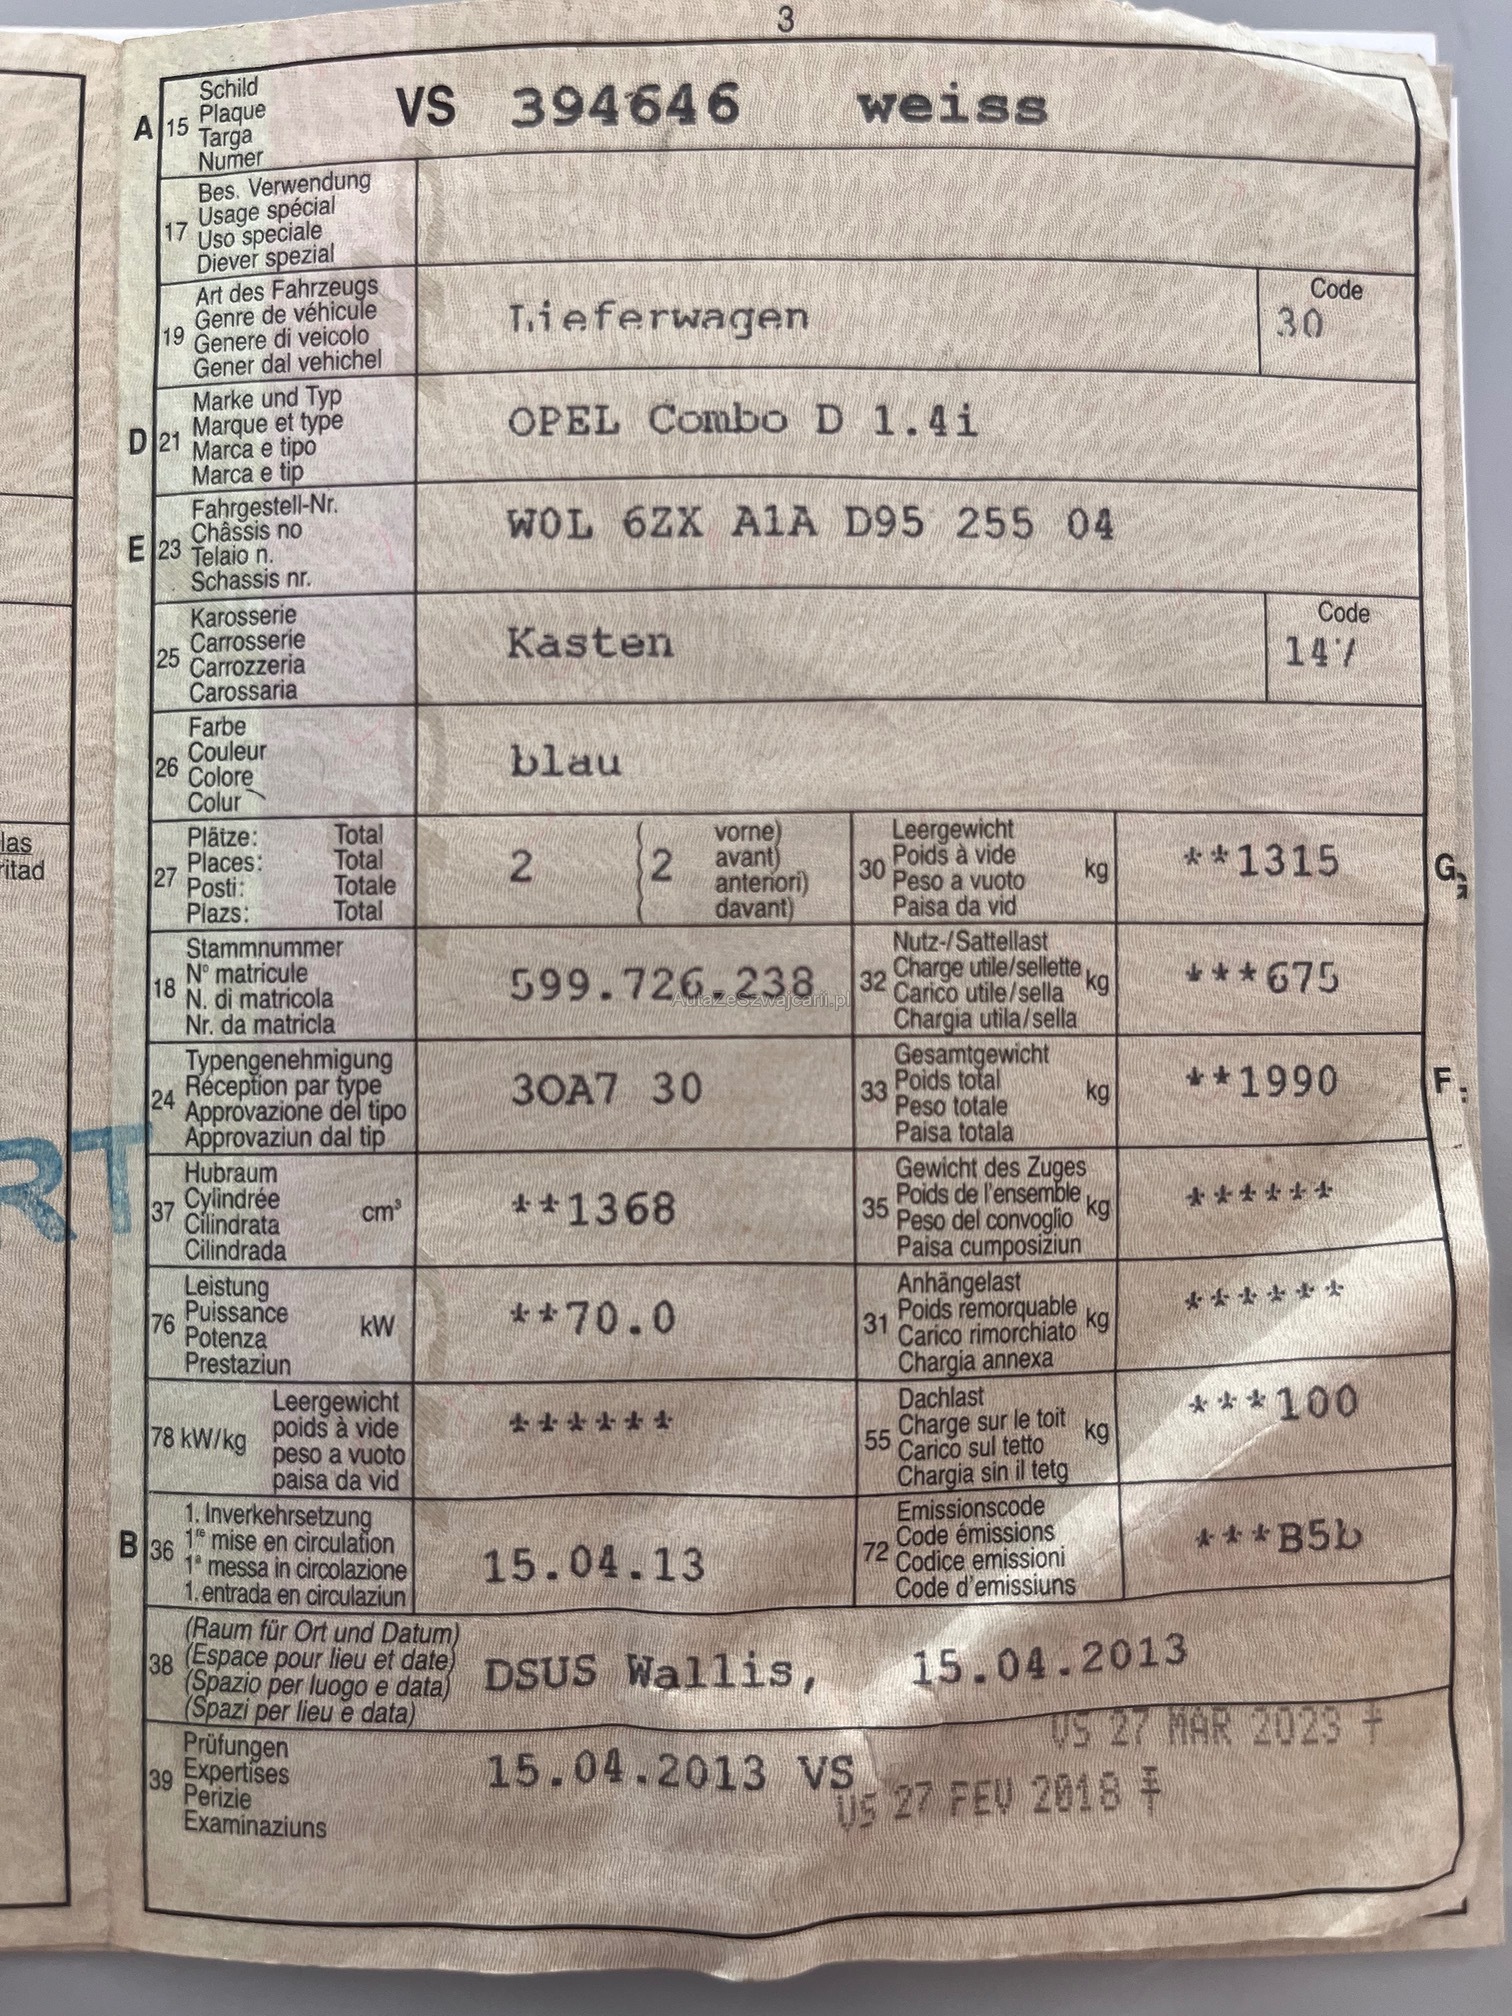 3
A 15 Schild
Plaque
Targa
Numer
VS 394646 weiss
17 Bes. Verwendung
Usage spécial
Uso speciale
Diever spezial
19 Art des Fahrzeugs
Genre de véhicule
Genere di veicolo
Gener dal vehichel
Lieferwagen
Code
30
D 21 Marke und Typ
Marque et type
Marca e tipo
Marca e tip
OPEL Combo D 1.4i
E 23 Fahrgestell-Nr.
Châssis no
Telaio n.
Schassis nr.
W0L 6ZX A1A D95 255 04
25 Karosserie
Carrosserie
Carrozzeria
Carossaria
Kasten
Code
147
26 Farbe
Couleur
Colore
Colur
blau
27 Plätze: Total
Places: Total
Posti: Totale
Plazs: Total
2
2
vorne)
avant)
anteriori)
davant)
30 Leergewicht
Poids à vide
Peso a vuoto
Paisa da vid
kg
**1315
G
18 Stammnummer
N° matricule
N. di matricola
Nr. da matricla
599.726.238
AutaZeSzwajcarii.pl
32 Nutz-/Sattellast
Charge utile/sellette
Carico utile/sella
Chargia utila/sella
kg
***675
24 Typengenehmigung
Réception par type
Approvazione del tipo
Approvaziun dal tip
3OA7 30
33 Gesamtgewicht
Poids total
Peso totale
Paisa totala
kg
**1990
F
37 Hubraum
Cylindrée
Cilindrata
Cilindrada
cm³
**1368
35 Gewicht des Zuges
Poids de l'ensemble
Peso del convoglio
Paisa cumposiziun
kg
******
76 Leistung
Puissance
Potenza
Prestaziun
kW
**70.0
31 Anhängelast
Poids remorquable
Carico rimorchiato
Chargia annexa
kg
******
78 kW/kg
Leergewicht
poids à vide
peso a vuoto
paisa da vid
******
55 Dachlast
Charge sur le toit
Carico sul tetto
Chargia sin il tetg
kg
***100
B 36 1. Inverkehrsetzung
1re mise en circulation
1a messa in circolazione
1. entrada en circulaziun
15.04.13
72 Emissionscode
Code émissions
Codice emissioni
Code d'emissiuns
***B5b
38 (Raum für Ort und Datum)
(Espace pour lieu et date)
(Spazio per luogo e data)
(Spazi per lieu e data)
DSUS Wallis, 15.04.2013
39 Prüfungen
Expertises
Perizie
Examinaziuns
15.04.2013 VS
VS 27 MAR 2023
VS 27 FEV 2018
las
ritad
RT